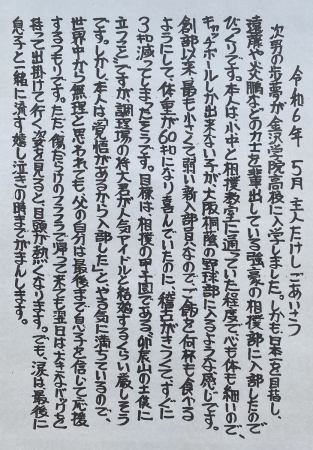 令和6年 5月 主人たけしごあいさつ
次男の歩夢が金沢学院高校に入学しました。しかも日本一を目指し、
遠藤や炎鵬などの力士を輩出している強豪の相撲部に入部したので
びっくりです。本人は小中と相撲教室に通っていた程度で心も体も細いので、
キャッチボールしか出来ない子が大阪桐蔭の野球部に入るような感じです。
創部以来、最も小さくて弱い新入部員なのでご飯を何杯も食べる
ようにして、体重が60キロになり喜んでいたのに、稽古がきつくてすぐに
3キロ減ってしまったそうです。目標は、相撲の甲子園である、卯辰山の土俵に
立つことですが、調理場の柊太君が人気アイドルと結婚するくらい厳しそう
です。しかし本人は「覚悟があるから入部した」とやる気に満ちているので、
世界中から無理と思われても、父の自分は最後まで息子を信じて応援
するつもりです。ただ、傷だらけのフラフラで帰って来ても翌日は大きなバッグを
持って出掛けて行く姿を見ると、目頭が熱くなります。でも、涙は最後に
息子と一緒に流す嬉し泣きの時までがまんします。